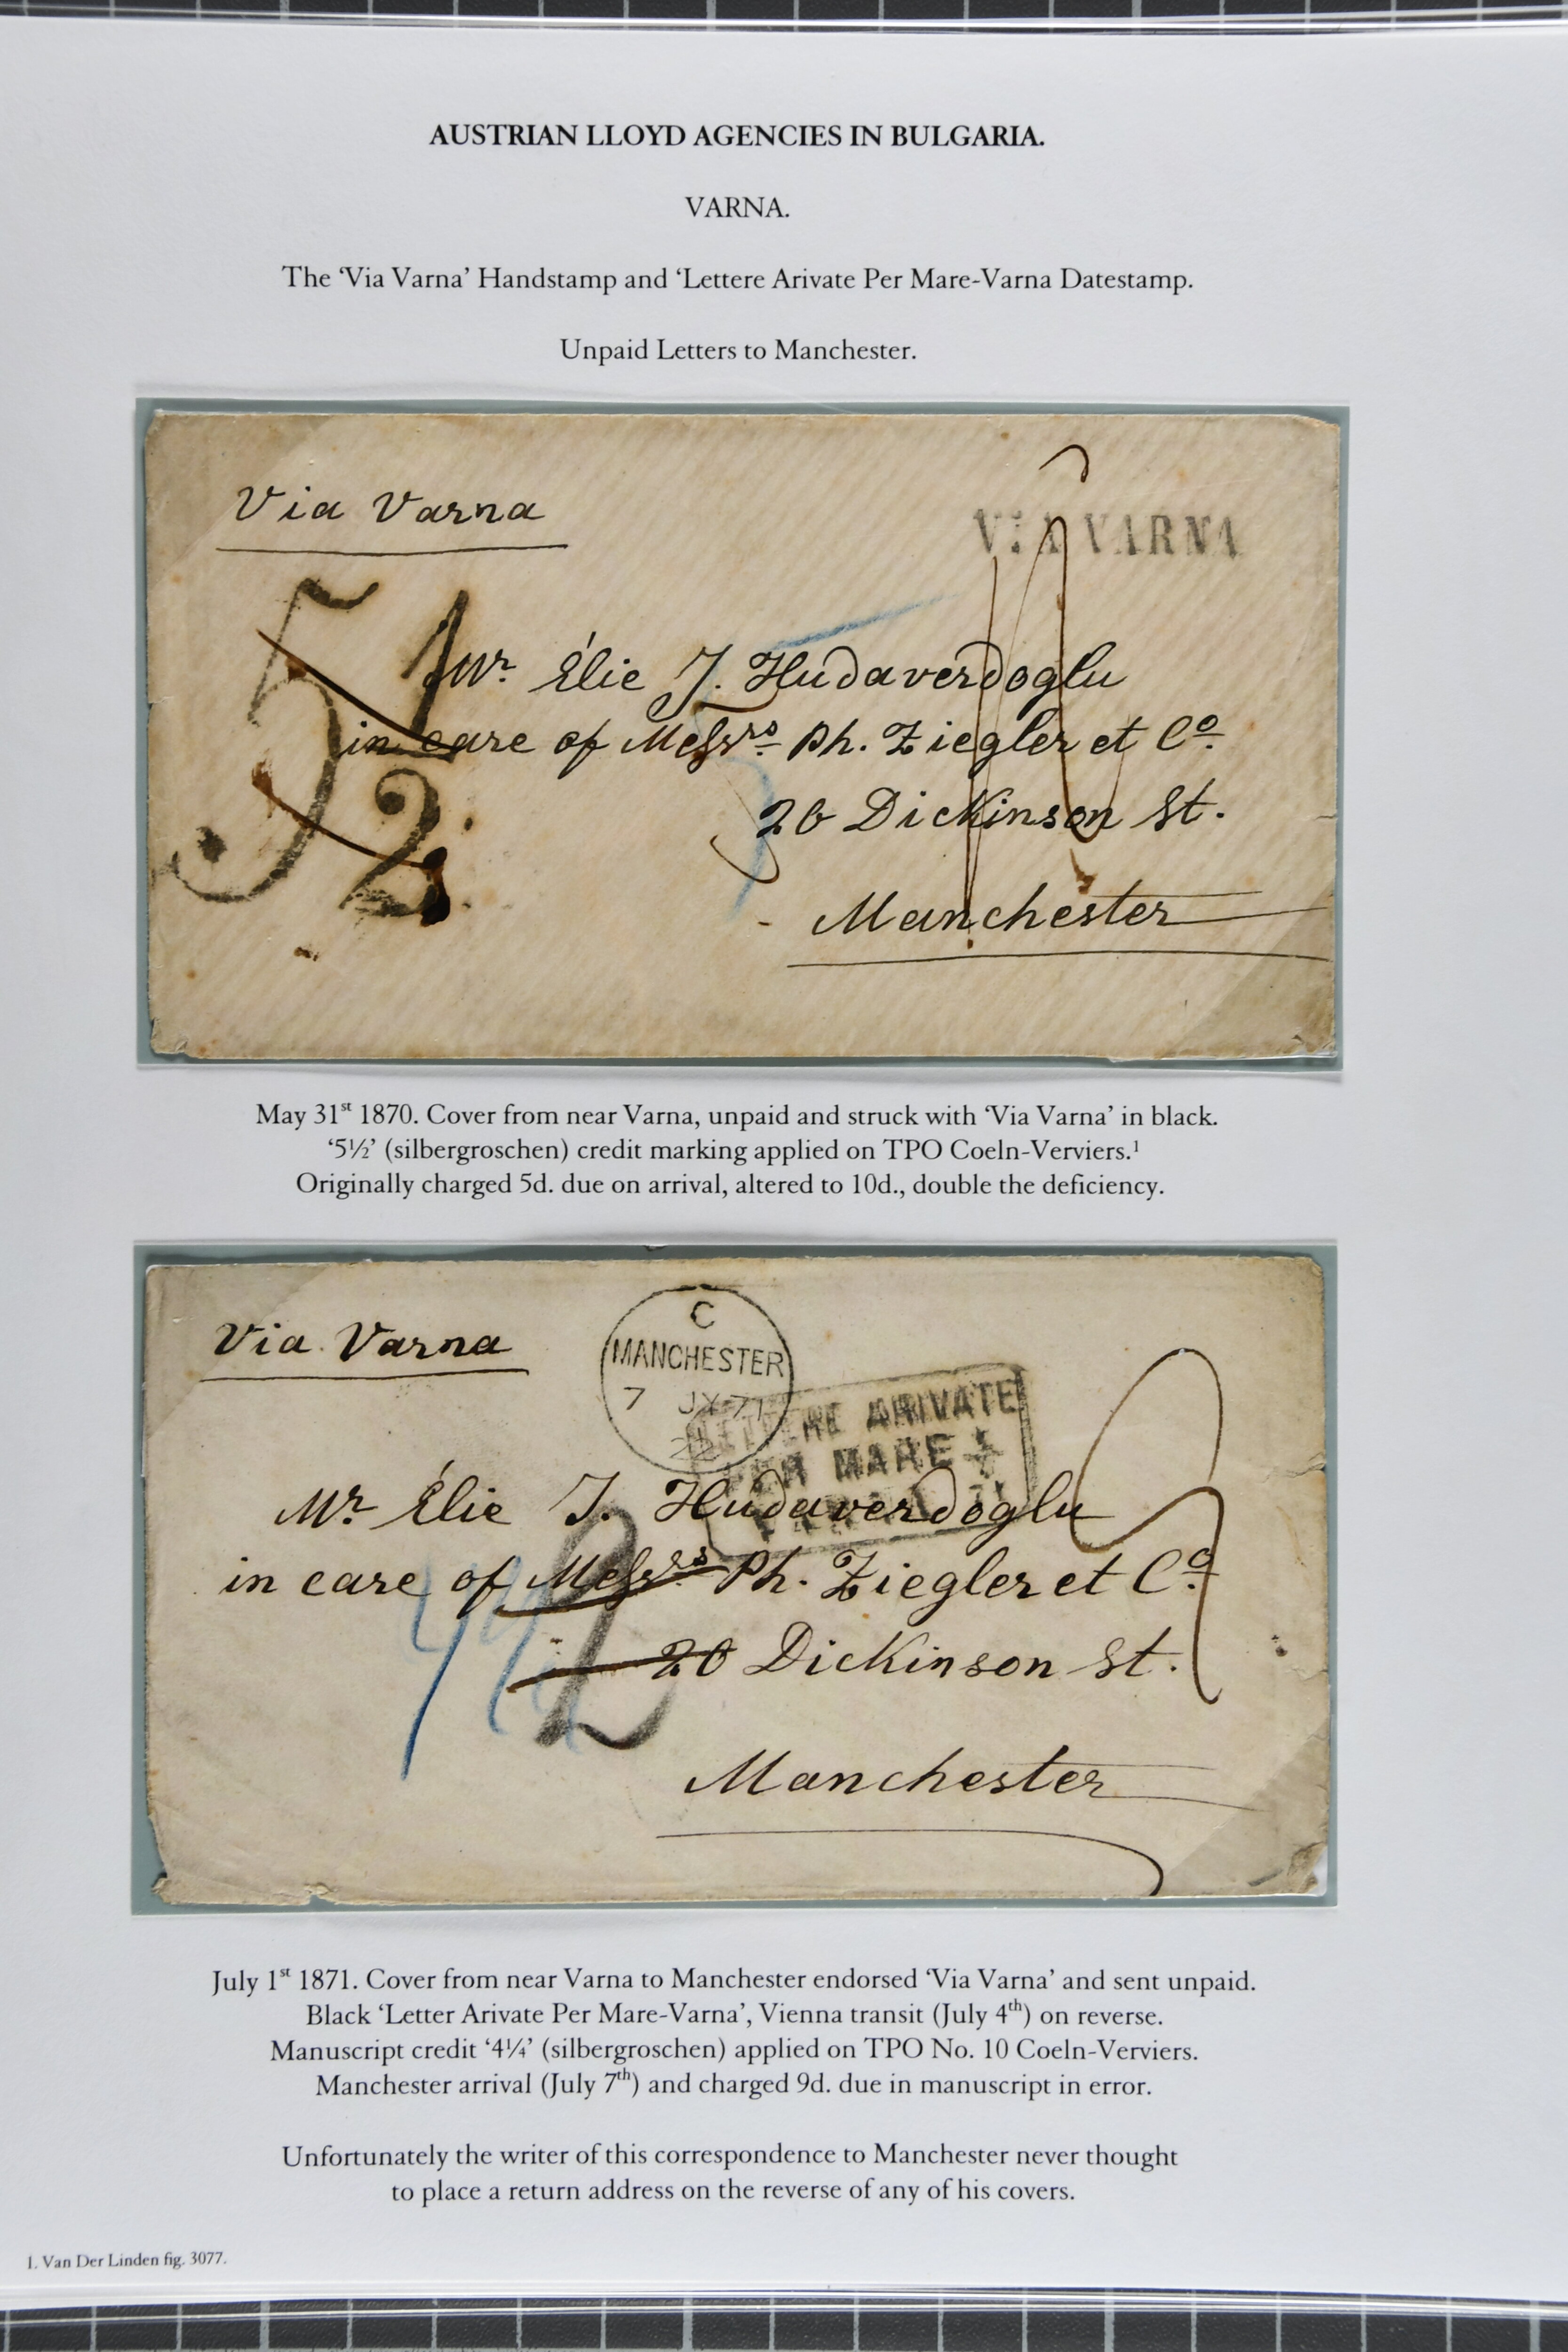 AUSTRIAN LLOYD AGENCIES IN BULGARIA.
VARNA.
The ‘Via Varna’ Handstamp and ‘Lettere Arivate Per Mare-Varna Datestamp.
Unpaid Letters to Manchester.
Via Varna
VIA VARNA
5 1/2
Mr. Élie J. Hudaverdoglu
in care of Messrs. Ph. Ziegler et Co.
20 Dickinson St.
Manchester
May 31st 1870. Cover from near Varna, unpaid and struck with ‘Via Varna’ in black.
‘5½’ (silbergroschen) credit marking applied on TPO Coeln-Verviers.1
Originally charged 5d. due on arrival, altered to 10d., double the deficiency.
Via Varna
C
MANCHESTER
7 JY 71
LETTERE ARIVATE
PER MARE
Mr. Élie J. Hudaverdoglu
in care of Messrs. Ph. Ziegler et Co.
20 Dickinson St.
Manchester
July 1st 1871. Cover from near Varna to Manchester endorsed ‘Via Varna’ and sent unpaid.
Black ‘Letter Arivate Per Mare-Varna’, Vienna transit (July 4th) on reverse.
Manuscript credit ‘4¼’ (silbergroschen) applied on TPO No. 10 Coeln-Verviers.
Manchester arrival (July 7th) and charged 9d. due in manuscript in error.
Unfortunately the writer of this correspondence to Manchester never thought
to place a return address on the reverse of any of his covers.
1. Van Der Linden fig. 3077.